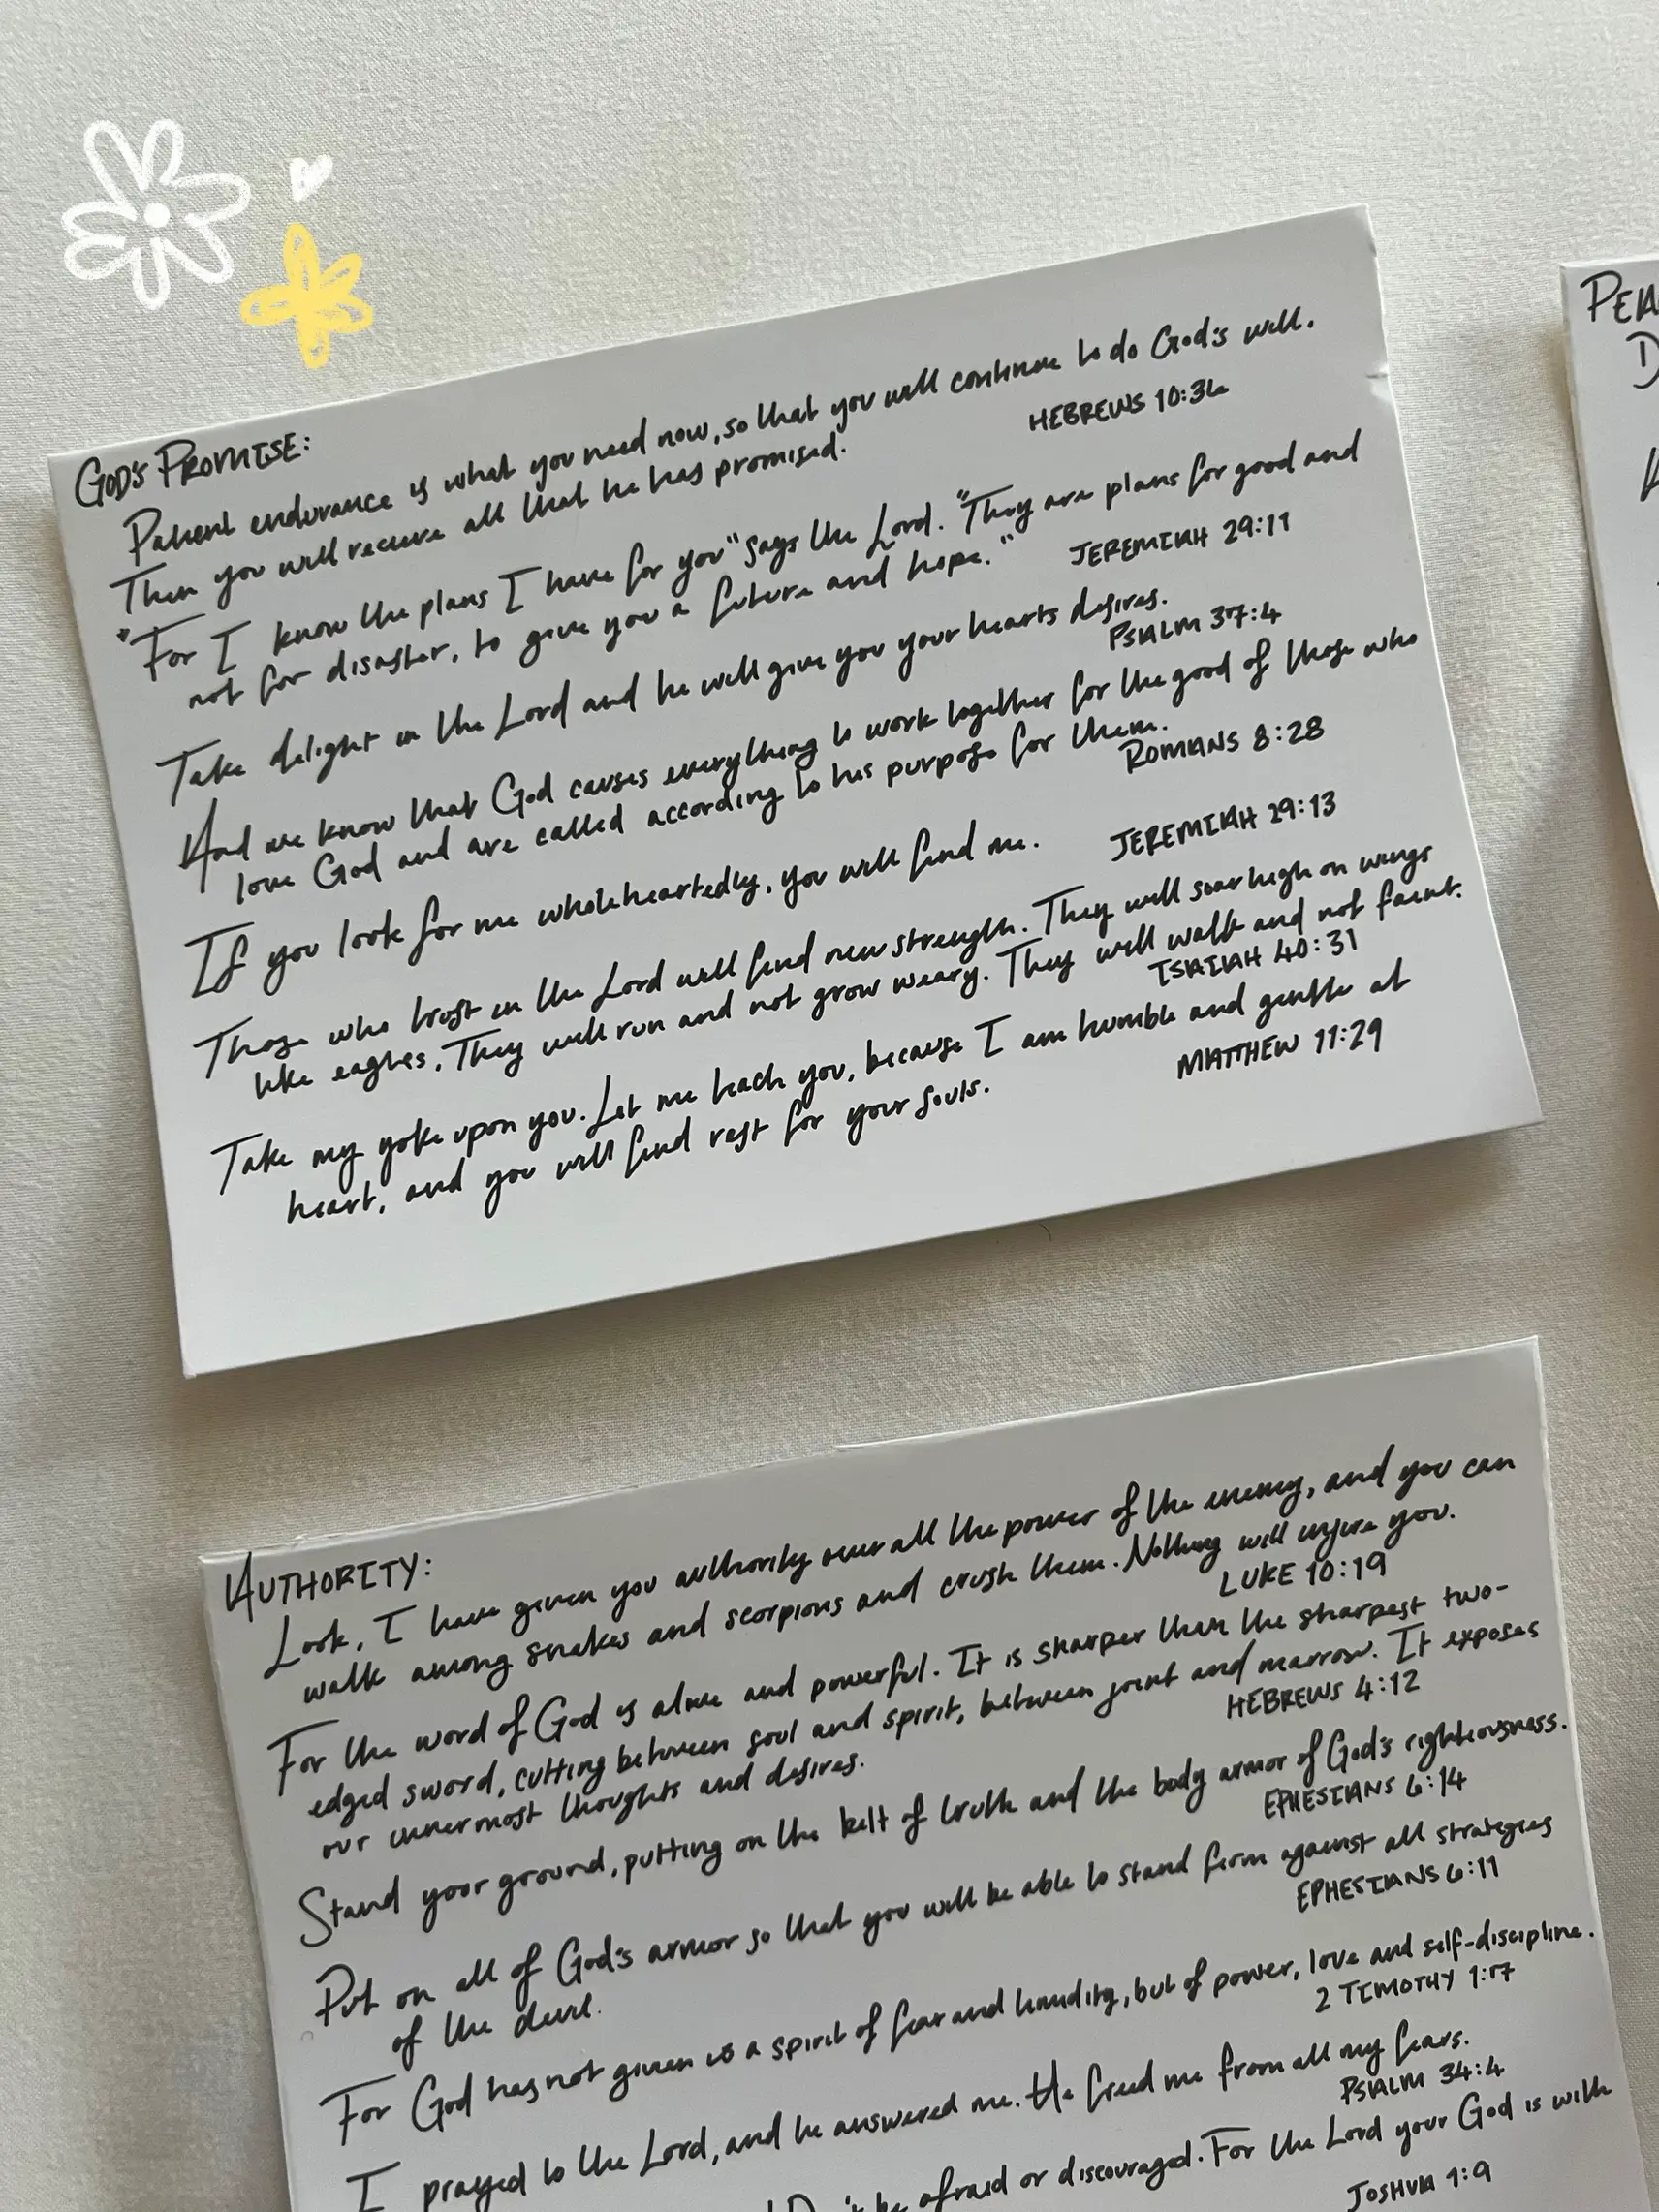 GOD'S PROMISE:
Patient endurance is what you need now, so that you will continue to do God's will.
Then you will receive all that he has promised.
HEBREWS 10:36
"For I know the plans I have for you" says the Lord. "They are plans for good and
not for disaster, to give you a future and hope."
JEREMIAH 29:11
Take delight in the Lord and he will give you your hearts desires.
PSALM 37:4
And we know that God causes everything to work together for the good of those who
love God and are called according to his purpose for them.
ROMANS 8:28
If you look for me wholeheartedly, you will find me.
JEREMIAH 29:13
Those who trust in the Lord will find new strength. They will soar high on wings
like eagles. They will run and not grow weary. They will walk and not faint.
ISAIAH 40:31
Take my yoke upon you. Let me teach you, because I am humble and gentle at
heart, and you will find rest for your souls.
MATTHEW 11:29
AUTHORITY:
Look, I have given you authority over all the power of the enemy, and you can
walk among snakes and scorpions and crush them. Nothing will injure you.
LUKE 10:19
For the word of God is alive and powerful. It is sharper than the sharpest two-
edged sword, cutting between soul and spirit, between joint and marrow. It exposes
our innermost thoughts and desires.
HEBREWS 4:12
Stand your ground, putting on the belt of truth and the body armor of God's righteousness.
EPHESIANS 6:14
Put on all of God's armor so that you will be able to stand firm against all strategies
of the devil.
EPHESIANS 6:11
For God has not given us a spirit of fear and timidity, but of power, love and self-discipline.
2 TIMOTHY 1:17
I prayed to the Lord, and he answered me. He freed me from all my fears.
PSALM 34:4
be afraid or discouraged. For the Lord your God is with
JOSHUA 1:9